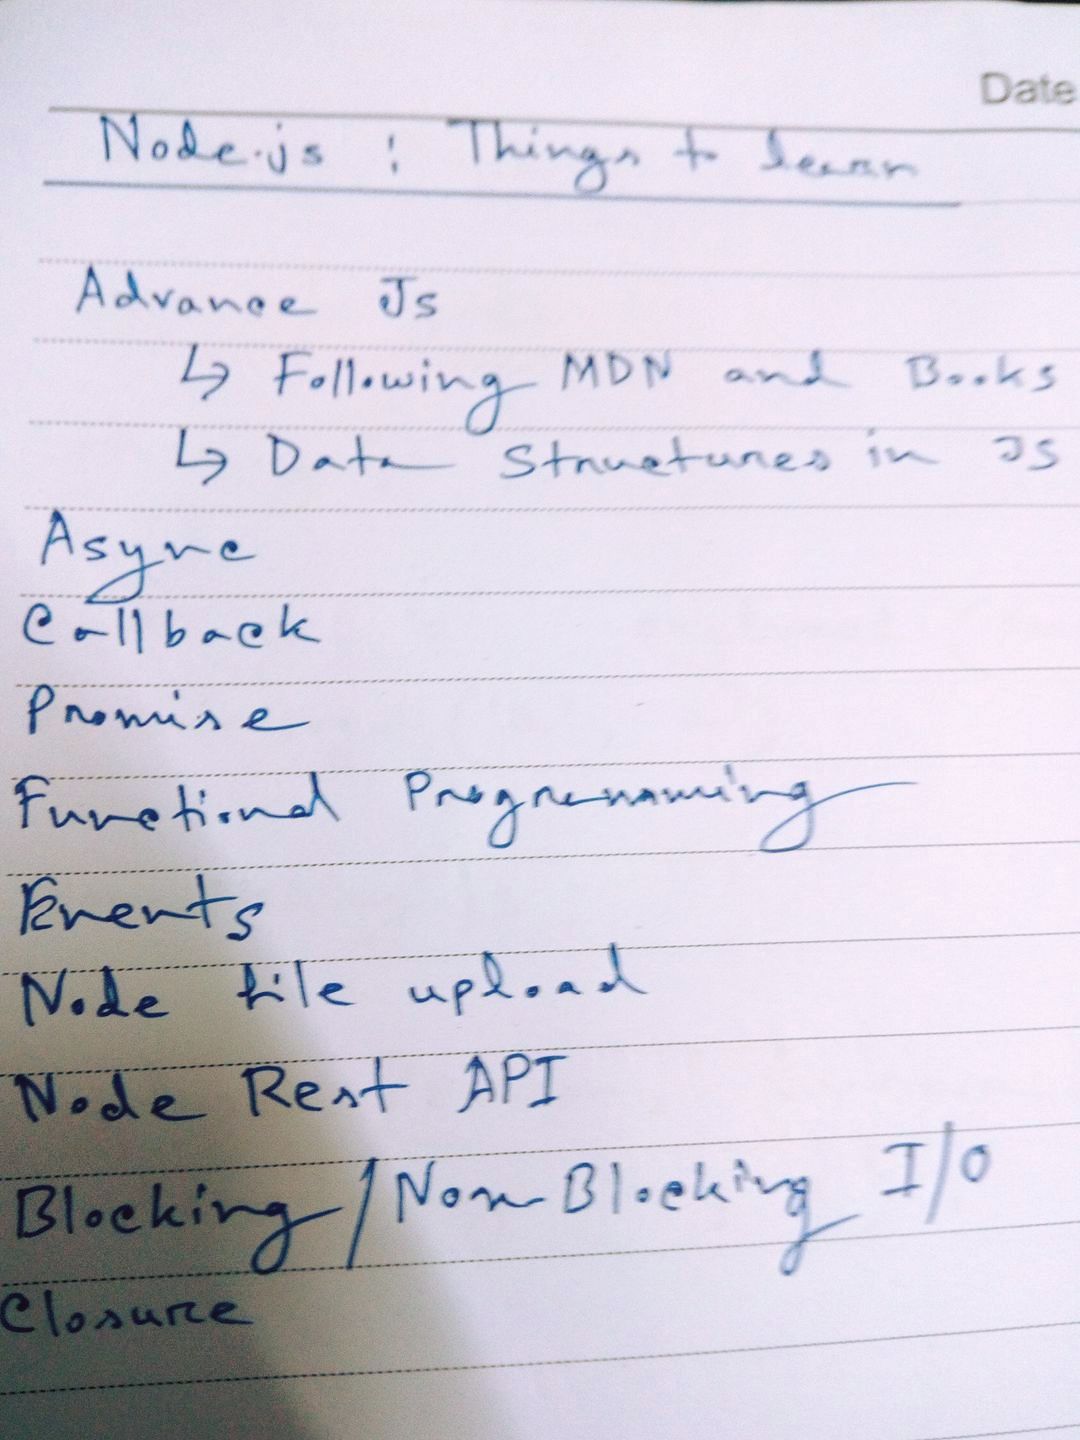 Date
Node.js : Things to learn
Advance Js
↳ Following MDN and Books
↳ Data Structures in JS
Async
Callback
Promise
Functional Programming
Events
Node file upload
Node Rest API
Blocking/Non-Blocking I/O
Closure